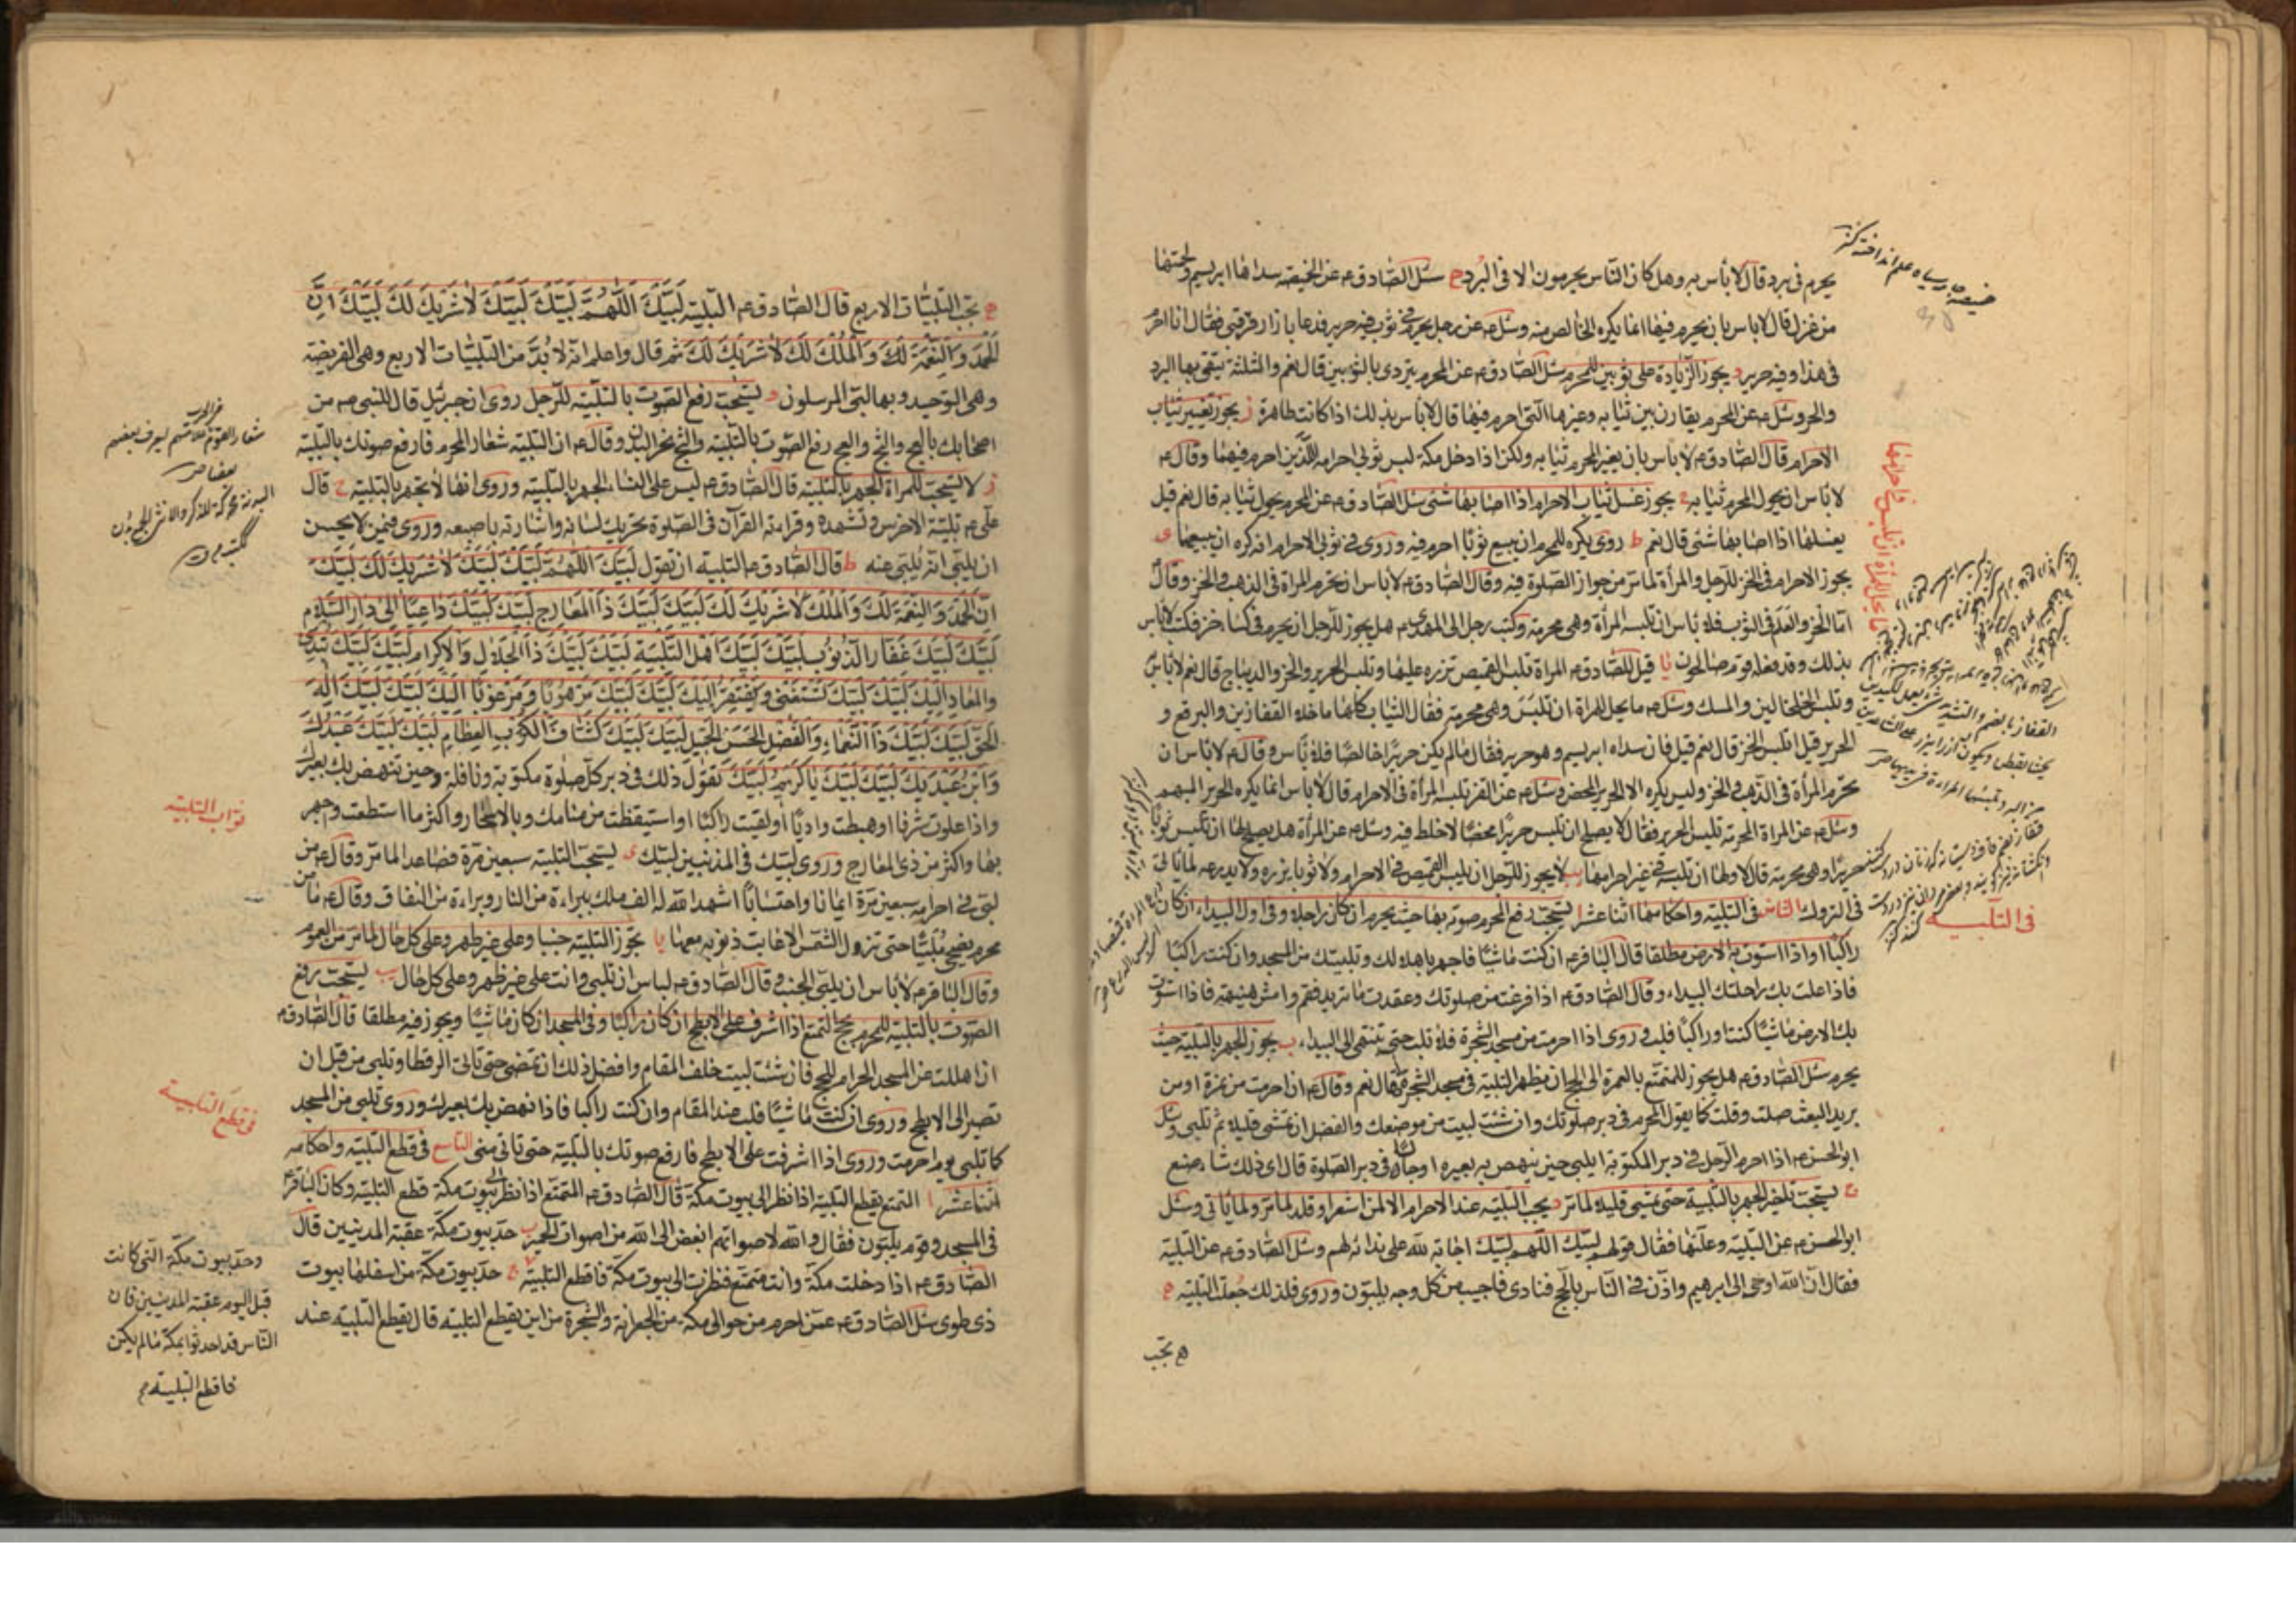 يحرم في برد قال لا باس به وهل كان الناس يحرمون الا في البرد ج سئل الصادق ع عن الخميصة سداها ابريسم ولحمتها
من غزل قال لا باس بان يحرم فيها انما يكره الخالص منه وسئل ع عن رجل يحرم في ثوب فيه حرير فدعا بازار قرقبي فقال انا احرم
في هذا وفيه حرير د يجوز الزيادة على ثوبين للمحرم سئل الصادق ع عن المحرم يتردى بالثوبين قال نعم والثلثة يتقي بها البرد
والحر وسئل ع عن المحرم يقارن بين ثيابه وغيرها التي احرم فيها قال لا باس بذلك اذا كانت طاهرة ز يجوز تغيير ثياب
الاحرام قال الصادق ع لا باس بان يغير المحرم ثيابه ولكن اذا دخل مكة لبس ثوبي احرامه اللذين احرم فيهما وقال ع
لا باس ان يحول المحرم ثيابه ح يجوز غسل ثياب الاحرام اذا اصابها شئ سئل الصادق ع عن المحرم يحول ثيابه قال نعم قيل
يغسلها اذا اصابها شئ قال نعم ط روى يكره للمحرم ان يبيع ثوبا احرم فيه وروى في ثوبي الاحرام انه كره ان يبيعهما ى
يجوز الاحرام في الخز للرجل والمرأة لما مر من جواز الصلوة فيه وقال الصادق ع لا باس ان تحرم المراة في الذهب والخز وقال
اما الخز والعلم في الثوب فلا باس ان تلبسه المرأة وهي محرمة وكتب رجل الى المهدي ع هل يجوز للرجل ان يحرم في كساء خز فكتب لا باس
بذلك وقد فعله قوم صالحون يا قيل للصادق ع المراة تلبس القميص تزره عليها وتلبس الحرير والخز والديباج قال نعم لا باس
وتلبس الخلخالين والمسك وسئل ع ما يحل للمراة ان تلبس وهي محرمة فقال الثياب كلها ما خلا القفازين والبرقع و
الحرير قيل اتلبس الخز قال نعم قيل فان سداه ابريسم وهو حرير فقال ما لم يكن حريرا خالصا فلا باس وقال ع لا باس ان
تحرم المرأة في الذهب والخز وليس يكره الا الحرير المحض وسئل ع عن القز تلبسه المرأة في الاحرام قال لا باس انما يكره الحرير المبهم
وسئل ع عن المراة المحرمة تلبس الحرير فقال لا يصلح ان تلبس حريرا محضا لا خلط فيه وسئل ع عن المرأة هل يصلح لها ان تلبس ثوبا
حريرا وهي محرمة قال لا ولها ان تلبسه في غير احرامها يب لا يجوز للرجل ان يلبس القميص في الاحرام ولا ثوبا يزره ولا يدرعه لما ياتي
في التروك الثامن في التلبية واحكامها اثنا عشر ا يستحب رفع المحرم صوته بها حيث يحرم ان كان راجلا وفي اول البيداء ان كان
راكبا او اذا استوت به الارض مطلقا قال الباقر ع ان كنت ماشيا فاجهر باهلالك وتلبيتك من المسجد وان كنت راكبا
فاذا علت بك راحلتك البيداء وقال الصادق ع اذا فرغت من صلوتك وعقدت ما تريد فقم وامش هنيهة فاذا استوت
بك الارض ماشيا كنت او راكبا فلب وروى اذا احرمت من مسجد الشجرة فلا تلب حتى تنتهي الى البيداء ب يجوز الجهر بالتلبية حيث
يحرم سئل الصادق ع هل يجوز للمتمتع بالعمرة الى الحج ان يظهر التلبية في مسجد الشجرة فقال نعم وقال ع ان احرمت من غمرة او من
بريد البعث صليت وقلت كما يقول المحرم في دبر صلوتك وان شئت لبيت من موضعك والفضل ان تمشي قليلا ثم تلبي وسئل
ابو الحسن ع اذا احرم الرجل في دبر المكتوبة ايلبي حين ينهض به بعيره او جالسا في دبر الصلوة قال اي ذلك شاء صنع
ج يستحب تاخير الجهر بالتلبية حتى يمشي قليلا لما مر د يجب التلبية عند الاحرام الا لمن اشعر او قلد لما مر ولما ياتي وسئل
ابو الحسن ع عن التلبية وعلتها فقال قولهم لبيك اللهم لبيك اجابة لله على ندائه لهم وسئل الصادق ع عن التلبية
فقال ان الله اوحى الى ابرهيم واذن في الناس بالحج فنادى فاجيب من كل وجه يلبون وروى فلذلك جعلت التلبية ه
ه تجب
ما يحل للمرأة ان تلبس في احرامها
في التلبية
ه تجب التلبيات الاربع قال الصادق ع التلبية لبيك اللهم لبيك لبيك لا شريك لك لبيك ان
الحمد والنعمة لك والملك لك لا شريك لك ثم قال واعلم انه لا بد من التلبيات الاربع وهي الفريضة
وهي التوحيد وبها لبى المرسلون و يستحب رفع الصوت بالتلبية للرجل روى ان جبرئيل قال للنبي ص مر
اصحابك بالعج والثج والعج رفع الصوت بالتلبية والثج نحر البدن وقال ع ان التلبية شعار المحرم فارفع صوتك بالتلبية
ز لا يستحب للمراة الجهر بالتلبية قال الصادق ع ليس على النساء الجهر بالتلبية وروى انها لا تجهر بالتلبية ح قال
علي ع تلبية الاخرس وتشهده وقراءته القرآن في الصلوة تحريك لسانه واشارته باصبعه وروى فيمن لا يحسن
ان يلبي انه يلبى عنه ط قال الصادق ع التلبية ان تقول لبيك اللهم لبيك لبيك لا شريك لك لبيك
ان الحمد والنعمة لك والملك لا شريك لك لبيك لبيك ذا المعارج لبيك لبيك داعيا الى دار السلام
لبيك لبيك غفار الذنوب لبيك لبيك اهل التلبية لبيك لبيك ذا الجلال والاكرام لبيك لبيك تبدئ
والمعاد اليك لبيك لبيك تستغني ويفتقر اليك لبيك لبيك مرهوبا ومرغوبا اليك لبيك لبيك اله
الحق لبيك لبيك ذا النعماء والفضل الحسن الجميل لبيك لبيك كشاف الكرب العظام لبيك لبيك عبدك
وابن عبديك لبيك لبيك يا كريم لبيك تقول ذلك في دبر كل صلوة مكتوبة ونافلة وحين ينهض بك بعيرك
واذا علوت شرفا او هبطت واديا او لقيت راكبا او استيقظت من منامك وبالاسحار واكثر ما استطعت واجهر
بها واكثر من ذي المعارج وروى لبيك في المذنبين لبيك ى يستحب التلبية سبعين مرة فصاعدا لما مر وقال ع من
لبى في احرامه سبعين مرة ايمانا واحتسابا اشهد الله له الف ملك ببراءة من النار وبراءة من النفاق وقال ع ما من
محرم يضحى ملبيا حتى تزول الشمس الا غابت ذنوبه معها يا يجوز التلبية جنبا وعلى غير طهر وعلى كل حال لما مر من العموم
وقال الباقر ع لا باس ان يلبي الجنب وقال الصادق ع لباس ان تلبي وانت على غير طهر وعلى كل حال يب يستحب رفع
الصوت بالتلبية للمحرم بحج التمتع اذا اشرف على الابطح ان كان راكبا وفي المسجد ان كان ماشيا ويجوز فيه مطلقا قال الصادق ع
ان اهللت من المسجد الحرام للحج فان شئت لبيت خلف المقام وافضل ذلك ان تمضي حتى تاتي الرقطا وتلبي من قبل ان
تصير الى الابطح وروى ان كنت ماشيا فلب عند المقام وان كنت راكبا فاذا نهض بك بعيرك وروى تلبي من المسجد
كما تلبي يوم احرمت وروى اذا اشرفت على الابطح فارفع صوتك بالتلبية حتى تاتي منى التاسع في قطع التلبية واحكامه
اثنا عشر ا التمتع يقطع التلبية اذا نظر الى بيوت مكة قال الصادق ع المتمتع اذا نظر الى بيوت مكة قطع التلبية وكان الباقر ع
في المسجد وقوم يلبون فقال والله لاصواتهم ابغض الى الله من اصوات الحمير ب حد بيوت مكة عقبة المدنيين قال
الصادق ع اذا دخلت مكة وانت متمتع فنظرت الى بيوت مكة فاقطع التلبية ج حد بيوت مكة من اسفلها بيوت
ذي طوى سئل الصادق ع عمن احرم من حوالي مكة من الجعرانة والشجرة من اين يقطع التلبية قال يقطع التلبية عند
شعار القوم علامتهم ليعرف بعضهم
بعضا ص
ثواب التلبية
في قطع التلبية
وحد بيوت مكة التي كانت
قبل اليوم عقبة المدنيين فان
الناس قد احدثوا بمكة ما لم يكن
فاقطع التلبية